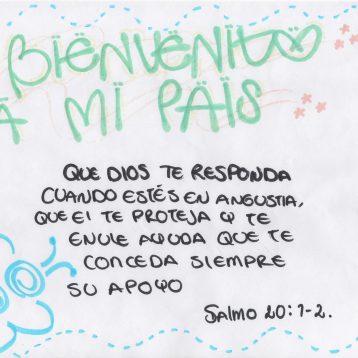 BIENVENITO
A MI PAÏS
QUE DIOS TE RESPONDA
CUANDO ESTÉS EN ANGUSTIA,
QUE EI TE PROTEJA Y TE
ENVIE AYUDA QUE TE
CONCEDA SIEMPRE
SU APOYO
SALMO 20:1-2.